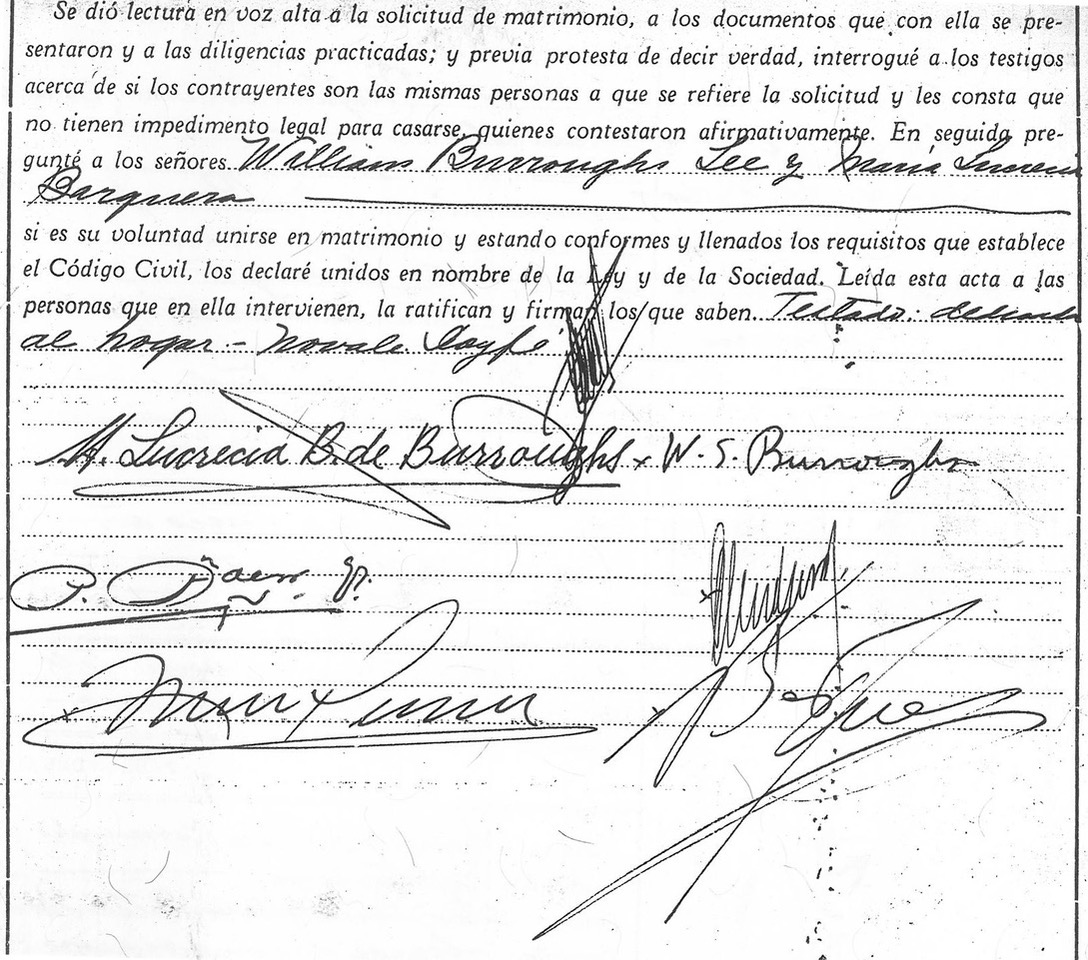 Se dió lectura en voz alta a la solicitud de matrimonio, a los documentos que con ella se pre-
sentaron y a las diligencias practicadas; y previa protesta de decir verdad, interrogué a los testigos
acerca de si los contrayentes son las mismas personas a que se refiere la solicitud y les consta que
no tienen impedimento legal para casarse, quienes contestaron afirmativamente. En seguida pre-
gunté a los señores William Burroughs Lee y María Lucrecia
Barquera
si es su voluntad unirse en matrimonio y estando conformes y llenados los requisitos que establece
el Código Civil, los declaré unidos en nombre de la Ley y de la Sociedad. Leída esta acta a las
personas que en ella intervienen, la ratifican y firman los que saben. Testado:
al hogar - no vale
M. Lucrecia B. de Burroughs x W. S. Burroughs